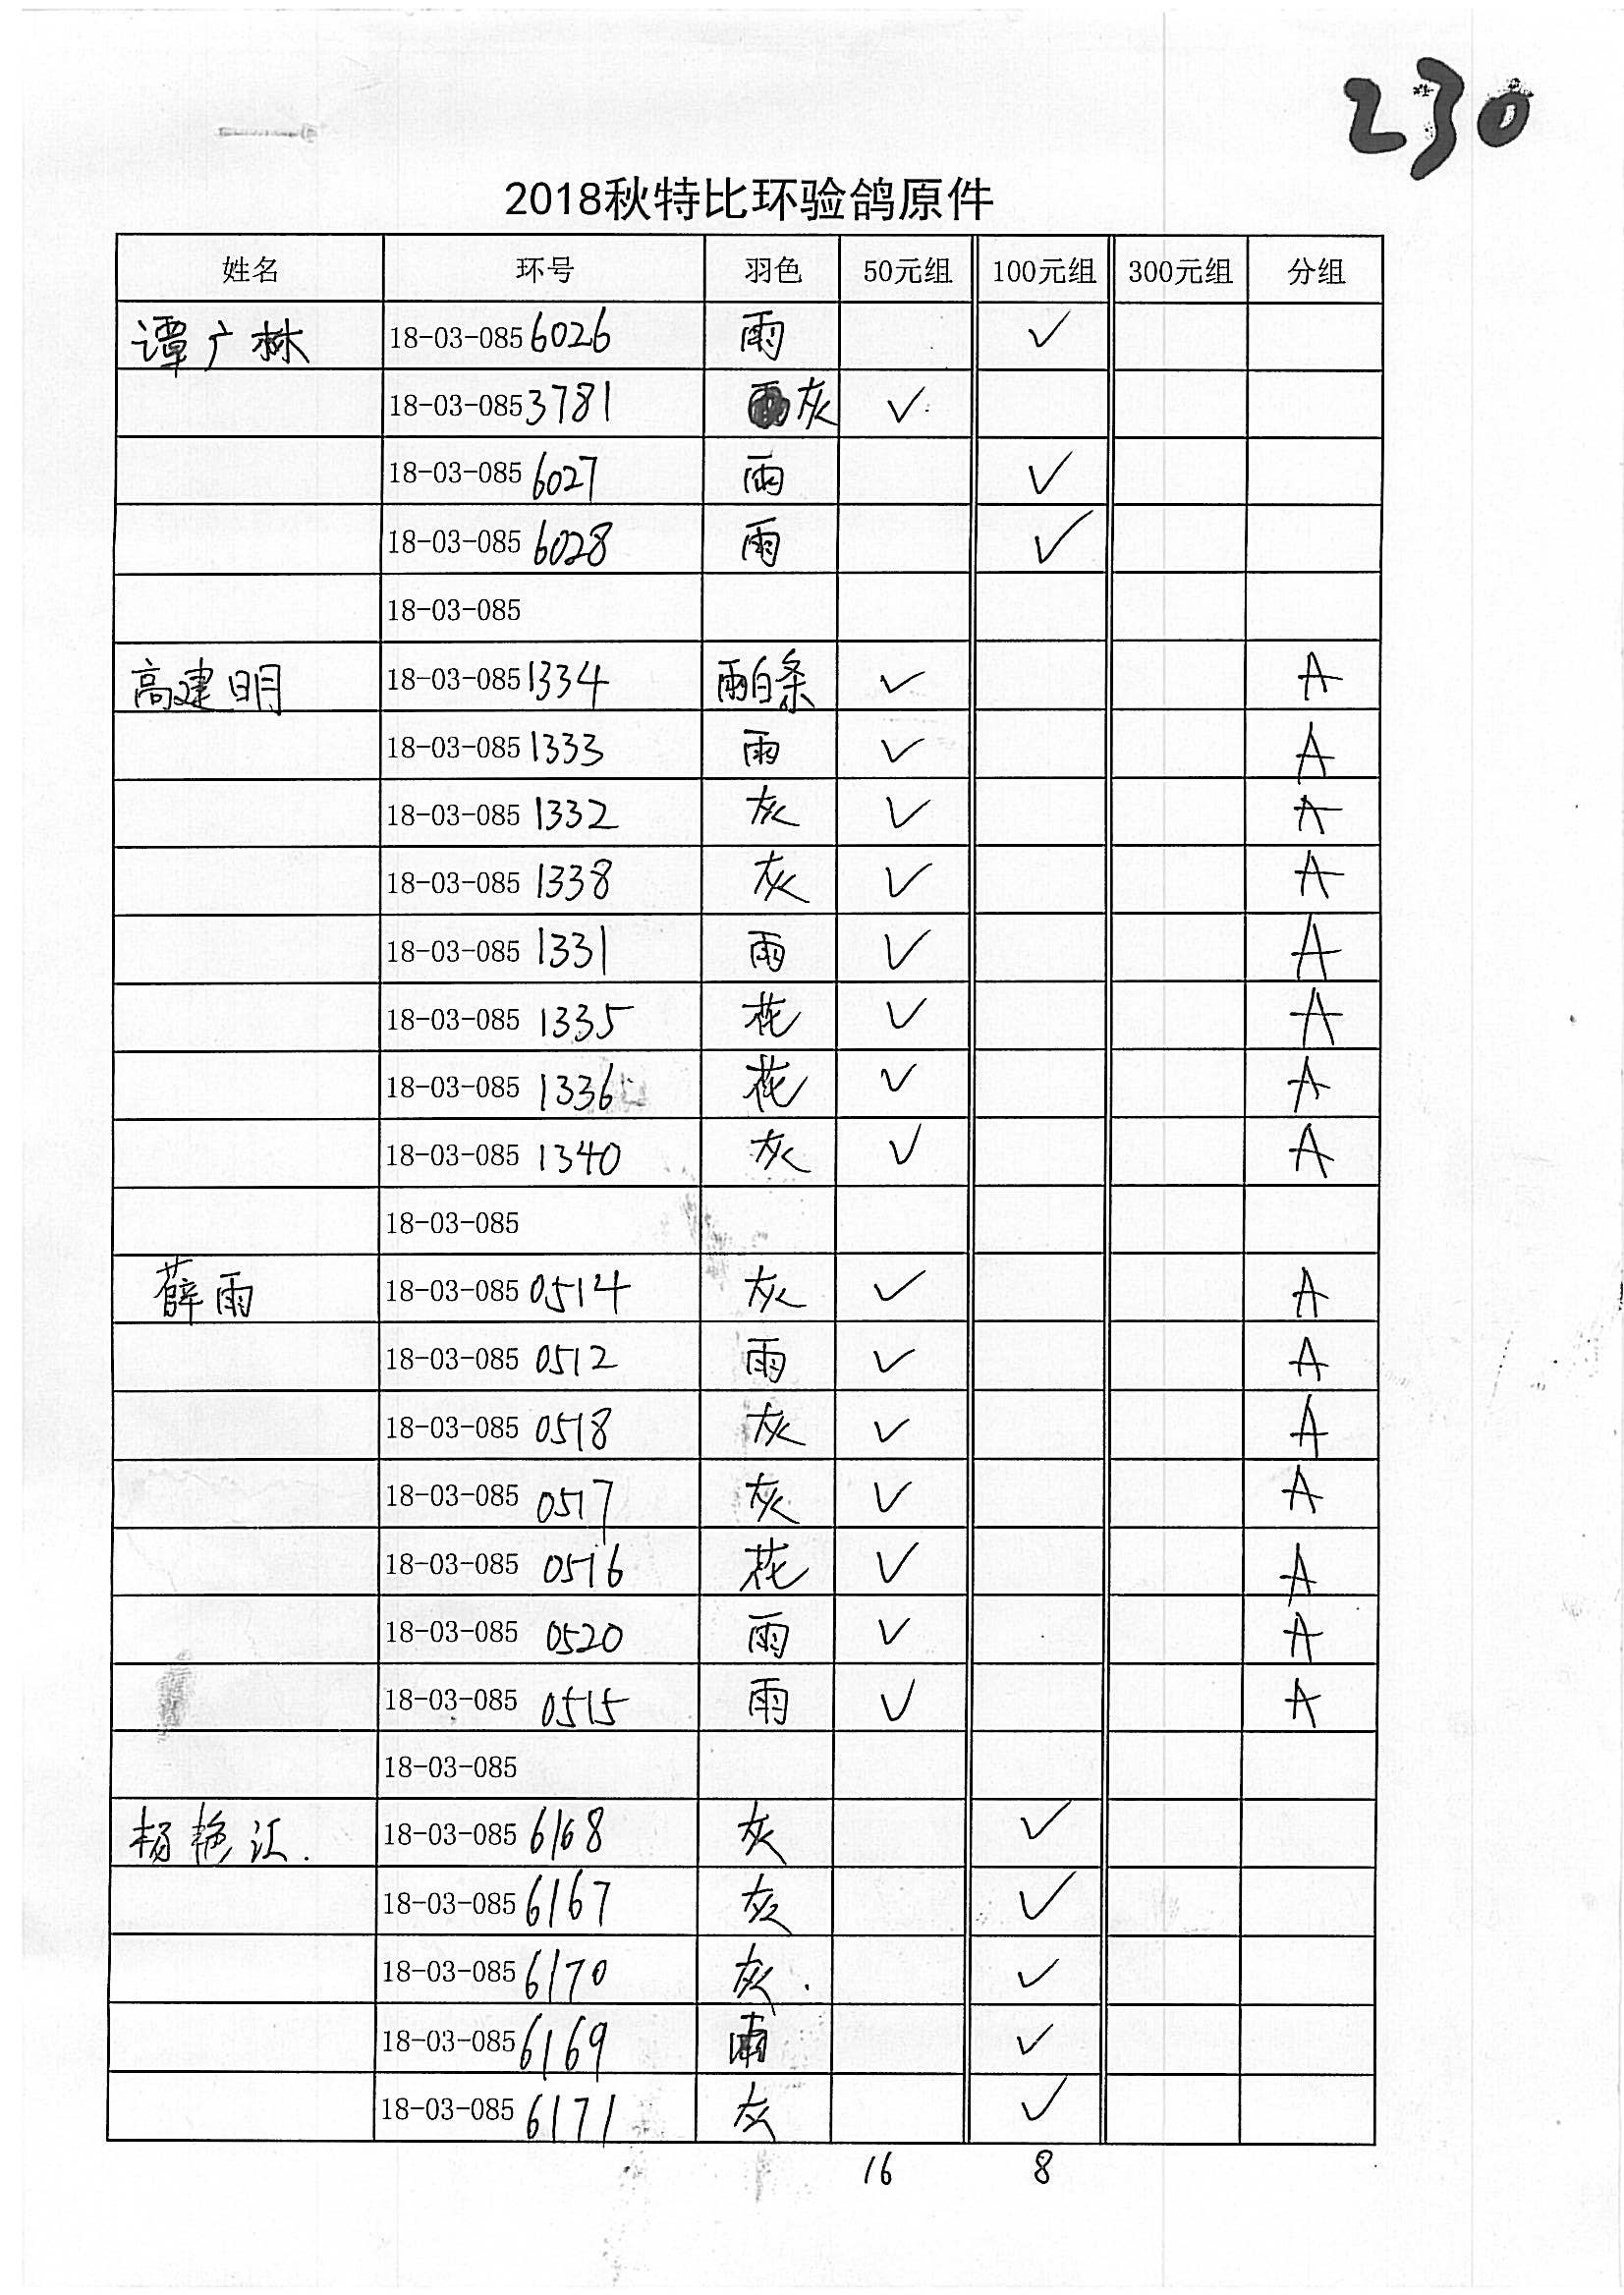 230
2018秋特比环验鸽原件
姓名 环号 羽色 50元组 100元组 300元组 分组
谭广林 18-03-085 6026 雨 ✓
18-03-085 3781 灰 ✓
18-03-085 6027 雨 ✓
18-03-085 6028 雨 ✓
18-03-085
高建明 18-03-085 1334 雨白条 ✓ A
18-03-085 1333 雨 ✓ A
18-03-085 1332 灰 ✓ A
18-03-085 1338 灰 ✓ A
18-03-085 1331 雨 ✓ A
18-03-085 1335 花 ✓ A
18-03-085 1336 花 ✓ A
18-03-085 1340 灰 ✓ A
18-03-085
薛雨 18-03-085 0514 灰 ✓ A
18-03-085 0512 雨 ✓ A
18-03-085 0518 灰 ✓ A
18-03-085 0517 灰 ✓ A
18-03-085 0516 花 ✓ A
18-03-085 0520 雨 ✓ A
18-03-085 0515 雨 ✓ A
18-03-085
杨艳江. 18-03-085 6168 灰 ✓
18-03-085 6167 灰 ✓
18-03-085 6170 灰. ✓
18-03-085 6169 雨 ✓
18-03-085 6171 灰 ✓
16 8